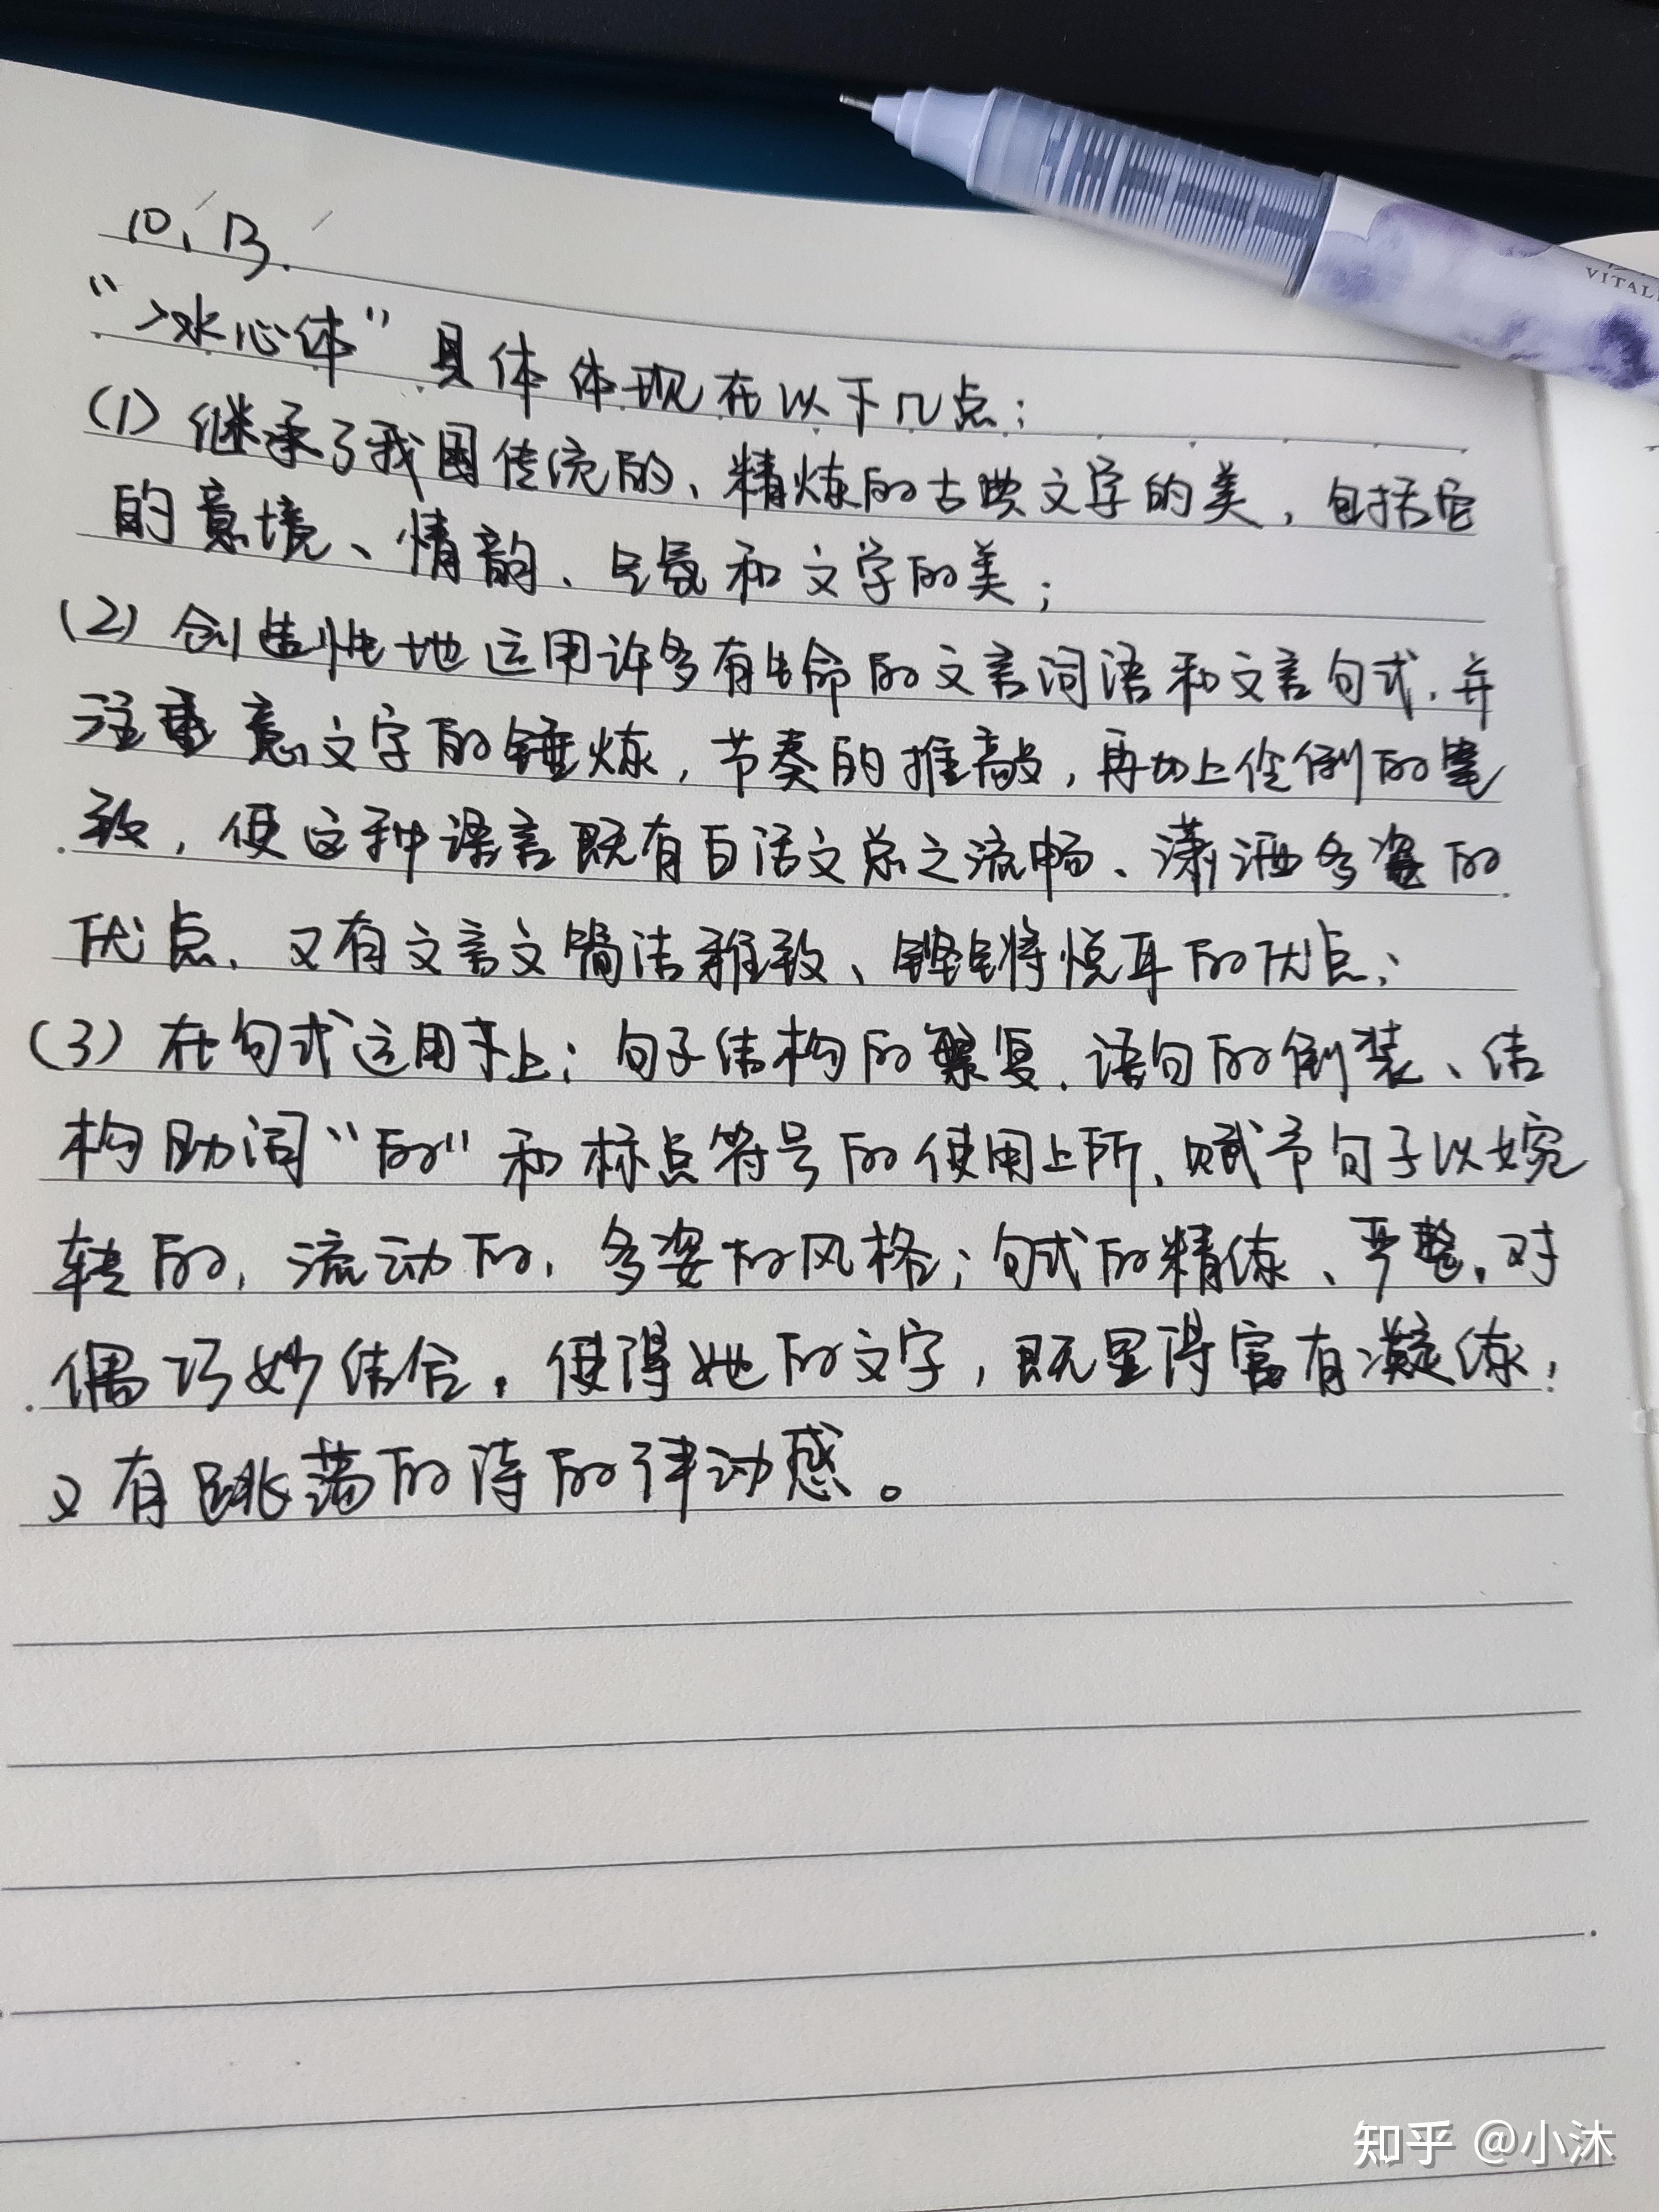 10、13.
“冰心体”具体体现在以下几点：
(1) 继承了我国传统的、精炼的古典文字的美，包括它
的意境、情韵、气氛和文字的美；
(2) 创造性地运用许多有生命的文言词语和文言句式，并
注重意文字的锤炼，节奏的推敲，再加上倒的笔
致，使这种语言既有白话文总之流畅、潇洒多姿的
优点，又有文言文简洁雅致、铿锵悦耳的优点；
(3) 在句式运用手上：句子结构的繁复、语句的倒装、结
构助词“的”和标点符号的使用上所，赋予句子以婉
转的，流动的，多姿的风格；句式的精炼、严整，对
偶巧妙结合，使得她的文字，既显得富有凝练，
又有跳荡的诗的律动感。
VITAL
知乎 @小沐